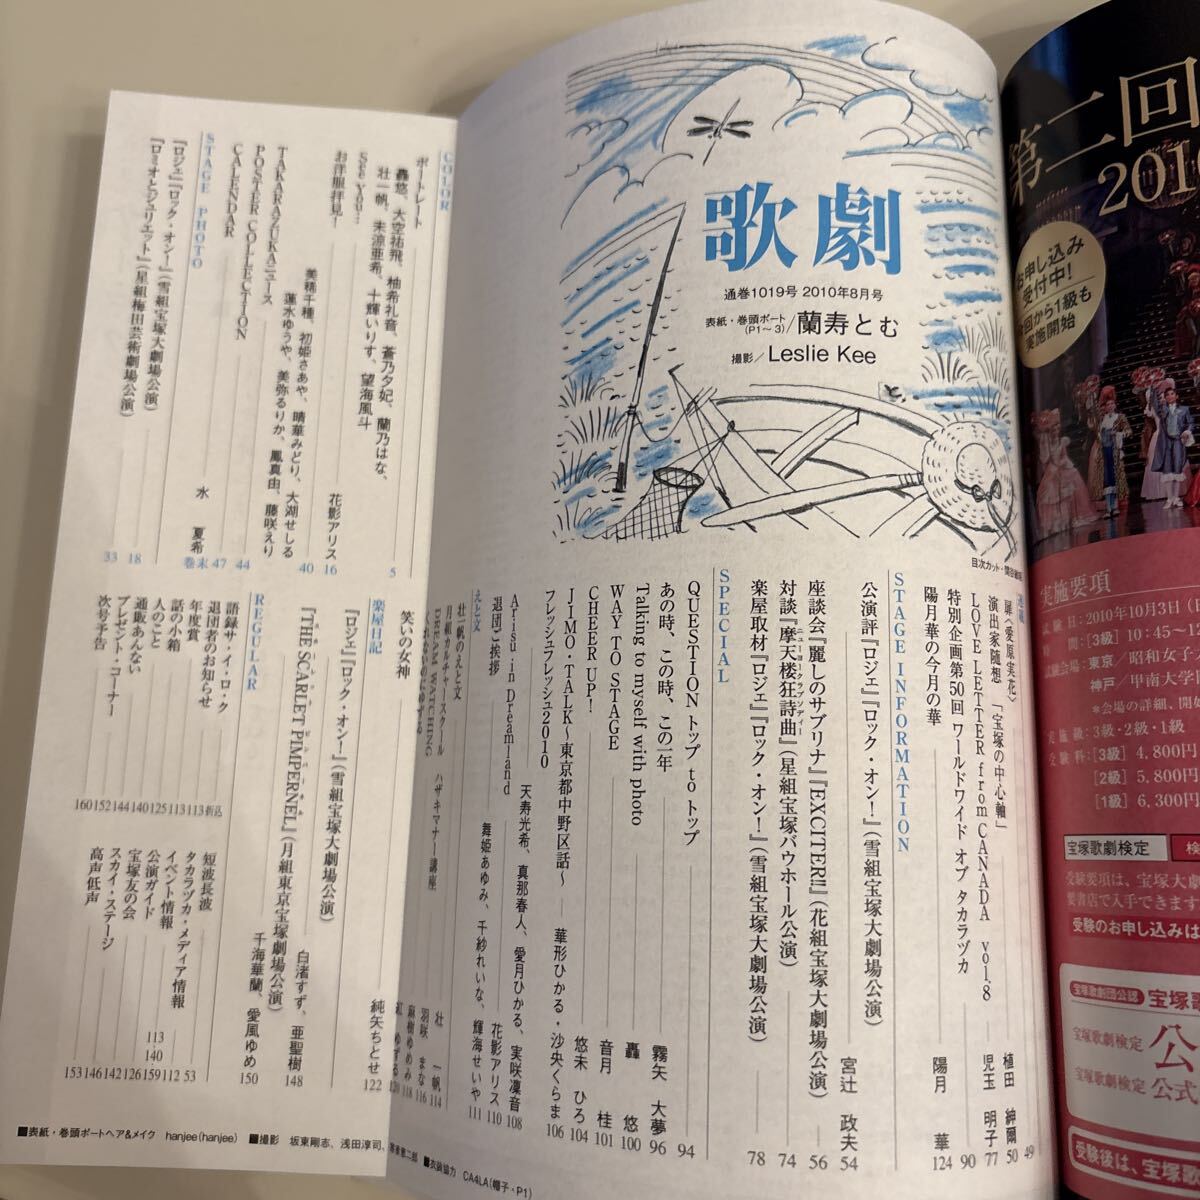 歌劇
通巻1019号 2010年8月号
表紙・巻頭ポート(P1〜3)/蘭寿とむ
撮影/Leslie Kee
扉〈愛原実花〉 49
演出家随想 「宝塚の中心軸」 植田 紳爾 50
LOVE LETTER from CANADA vol.8 児玉 明子 77
特別企画第50回 ワールドワイド オブ タカラヅカ 90
陽月華の今月の華 陽月 華 124
STAGE INFORMATION
公演評『ロジェ』『ロック・オン!』(雪組宝塚大劇場公演) 宮辻 政夫 54
座談会『麗しのサブリナ』『EXCITER!!』(花組宝塚大劇場公演) 56
対談『摩天楼狂詩曲』(星組宝塚バウホール公演) 74
ニューヨークラプソディー
楽屋取材『ロジェ』『ロック・オン!』(雪組宝塚大劇場公演) 78
SPECIAL
QUESTION トップ to トップ 94
あの時、この時、この一年 霧矢 大夢 96
Talking to myself with photo 轟 悠 100
WAY TO STAGE 音月 桂 101
CHEER UP! 悠未 ひろ 104
JIMO・TALK〜東京都中野区話〜 華形ひかる・沙央くらま 106
フレッシュフレッシュ2010 天寿光希、真那春人、愛月ひかる、実咲凜音 108
Arisu in Dreamland 花影アリス 110
退団ご挨拶 舞姫あゆみ、千紗れいな、輝海せいや 111
えと文
壮一帆のえと文 壮 一帆 114
月組カルチャースクール ハザキマナー講座 羽咲 まな 116
DREAM WATCHING 麻樹ゆめみ 118
くれないのにゆづる 紅 ゆずる 120
笑いの女神 純矢ちとせ 122
楽屋日記
『ロジェ』『ロック・オン!』(雪組宝塚大劇場公演) 白渚すず、亜聖樹 148
『THE SCARLET PIMPERNEL』(月組東京宝塚劇場公演) 千海華蘭、愛風ゆめ 150
COLOR
ポートレート 5
轟悠、大空祐飛、柚希礼音、蒼乃夕妃、蘭乃はな、
壮一帆、未涼亜希、十輝いりす、望海風斗
see you… 花影アリス 16
お洋服拝見! 40
美穂千種、初姫さあや、晴華みどり、大湖せしる
蓮水ゆうや、美弥るりか、鳳真由、藤咲えり
TAKARAZUKAニュース 44
POSTER COLLECTION 47
CALENDAR 水 夏希 巻末
STAGE PHOTO
『ロジェ』『ロック・オン!』(雪組宝塚大劇場公演) 18
『ロミオとジュリエット』(星組梅田芸術劇場公演) 33
REGULAR
語録サ・イ・ロ・ク 折込
退団者のお知らせ 113
年度賞 113
話の小箱 125
人のこと 140
通販あんない 144
プレゼント・コーナー 152
次号予告 160
短波長波 53
タカラヅカ・メディア情報 112
イベント情報 159
公演ガイド 113〜140
宝塚友の会 126
スカイ・ステージ 142
高声低声 146
153
■表紙・巻頭ポートヘア&メイク hanjee(hanjee) ■撮影 坂東剛志、浅田淳司、
■衣装協力 CA4LA(帽子・P1)
第二回
2010
お申し込み
受付中!
今回から1級も
実施開始
実施要項
試験日:2010年10月3日
時 間:[3級]10:45〜12
試験会場:東京/昭和女子大
神戸/甲南大学
*会場の詳細、開始
実施級:3級・2級・1級
受験料:[3級]4,800円
[2級]5,800円
[1級]6,300円
宝塚歌劇検定
検
受験要項は、宝塚大劇
要書店で入手できます
受験のお申し込みは
宝塚歌劇団公認 宝塚歌
宝塚歌劇検定 公
宝塚歌劇検定 公式
受験後は、宝